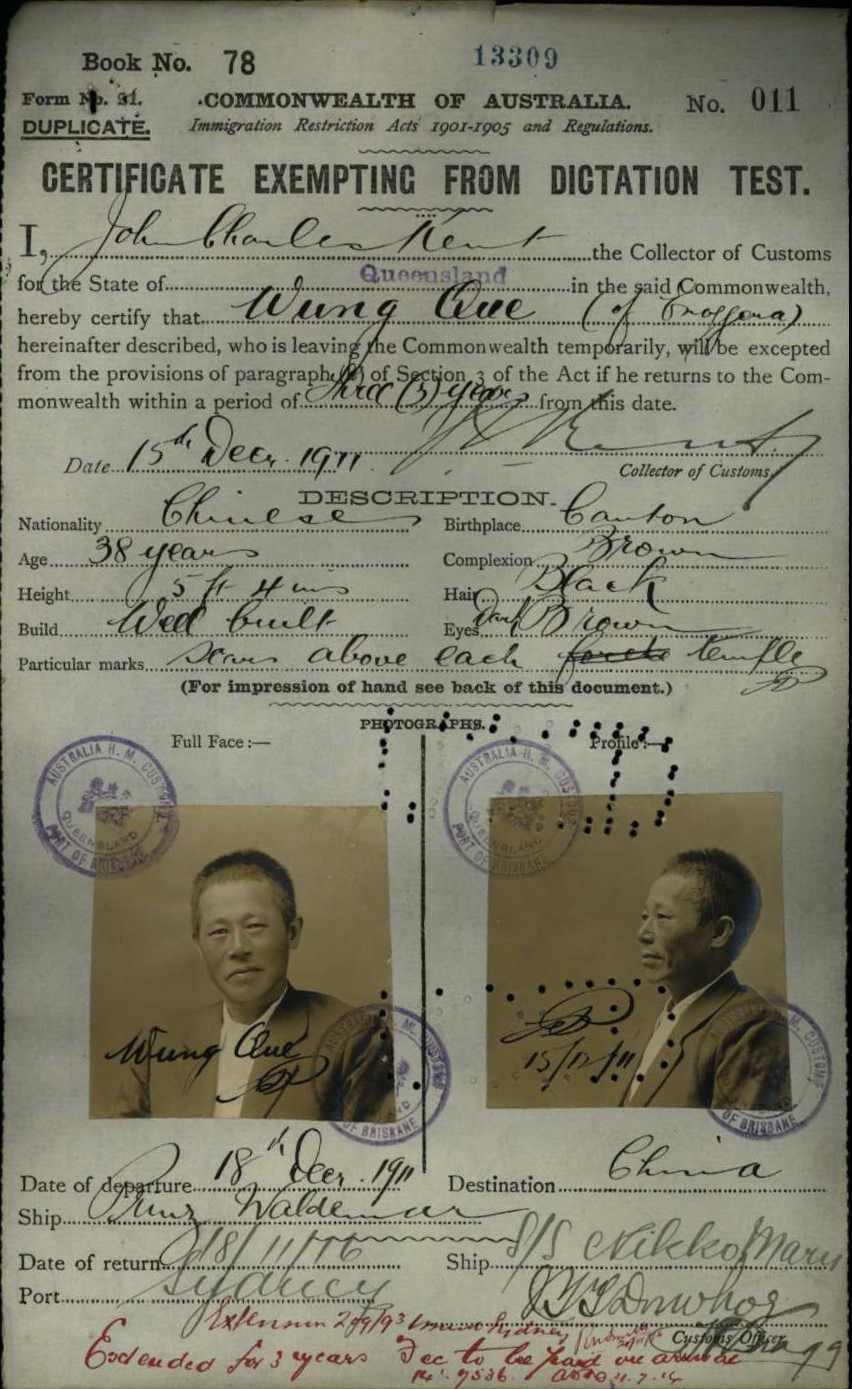 Book No. 78
13309
Form No. 21.
COMMONWEALTH OF AUSTRALIA.
No. 011
DUPLICATE.
Immigration Restriction Acts 1901-1905 and Regulations.
CERTIFICATE EXEMPTING FROM DICTATION TEST.
I, John Charles Kent the Collector of Customs
for the State of Queensland in the said Commonwealth,
hereby certify that Wung Que (of Enoggera)
hereinafter described, who is leaving the Commonwealth temporarily, will be excepted
from the provisions of paragraph (a) of Section 3 of the Act if he returns to the Com-
monwealth within a period of three (3) years from this date.
Date 15th Decr. 1911
Collector of Customs.
DESCRIPTION.
Nationality Chinese
Birthplace Canton
Age 38 years
Complexion Brown
Height 5 ft 4 ins
Hair Black
Build Well built
Eyes Dark Brown
Particular marks Scars above each temple
(For impression of hand see back of this document.)
PHOTOGRAPHS.
Full Face :—
Profile :—
AUSTRALIA H. M. CUSTOMS
QUEENSLAND
PORT OF BRISBANE
AUSTRALIA H. M. CUSTOMS
QUEENSLAND
PORT OF BRISBANE
Wung Que
15/12/11
M. CUSTOMS
OF BRISBANE
M. CUSTOMS
OF BRISBANE
Date of departure 18th Decr. 1911
Destination China
Ship Prinz Waldemar
Date of return 18/11/16
Ship S/S Nikko Maru
Port Sydney
Customs Officer
Extension
Sydney
Extended for 3 years Fee to be paid on arrival
14. 9536. 4.7.14